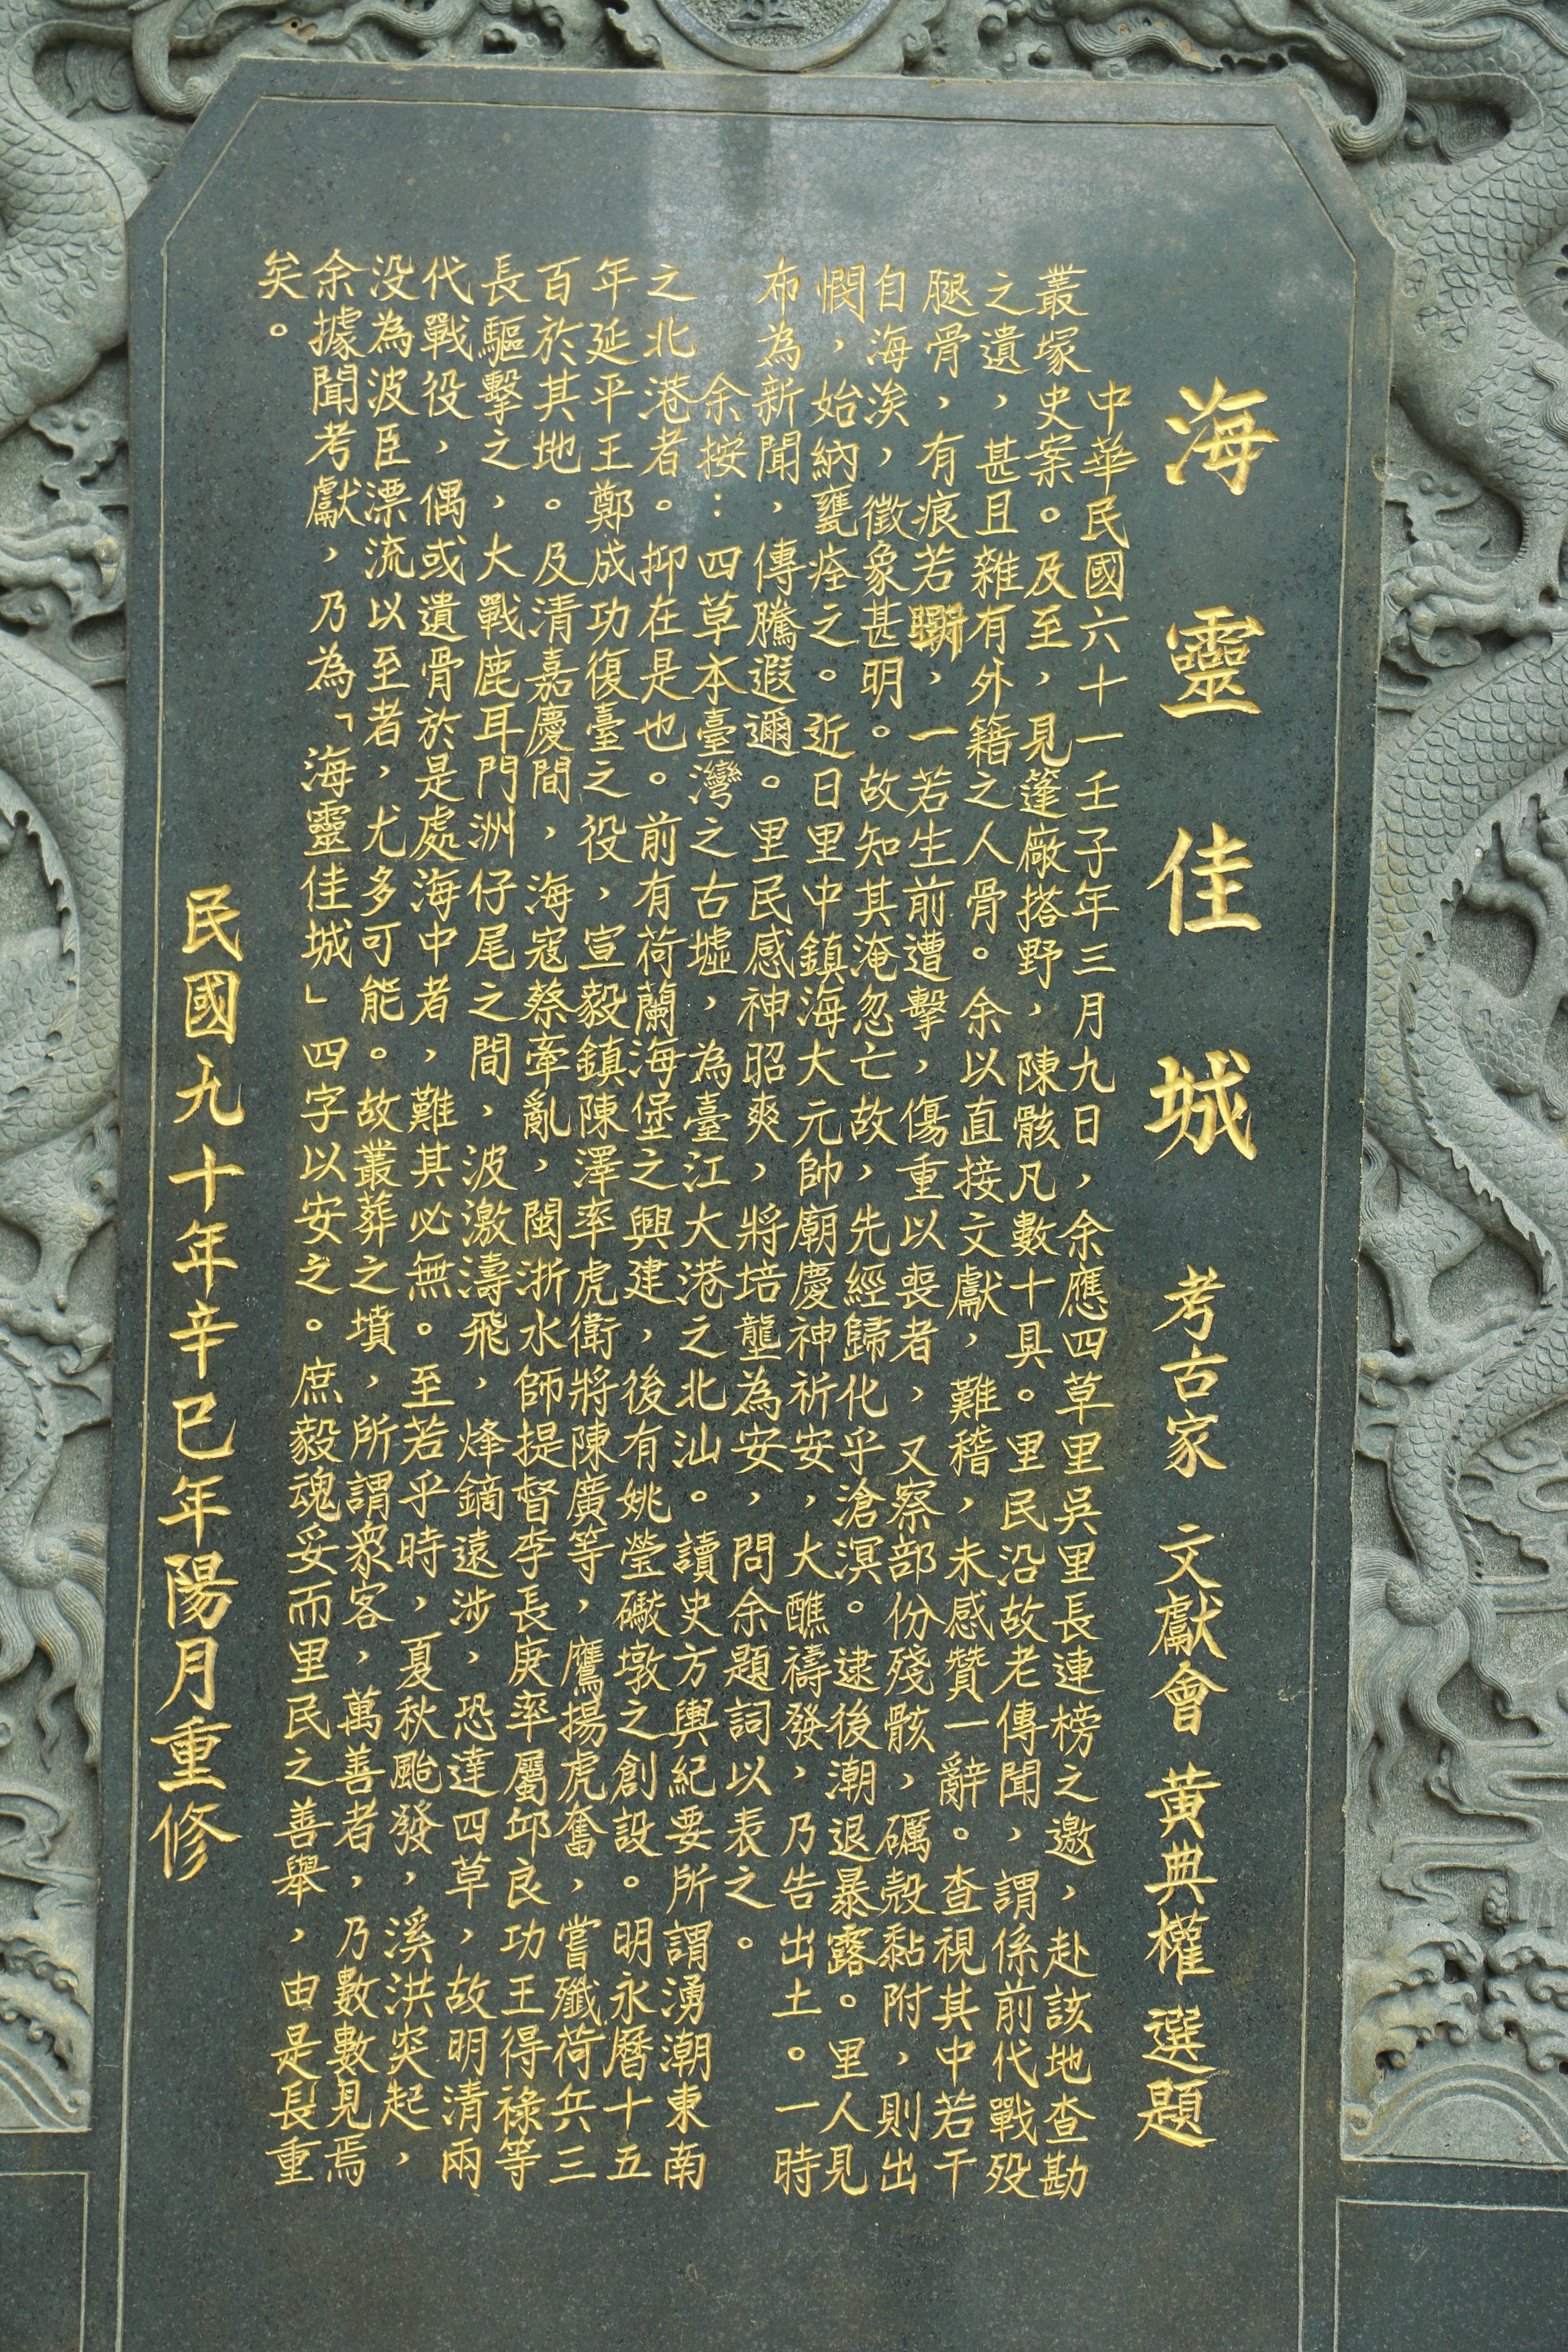 海靈佳城 考古家 文獻會 黃典權 選題
中華民國六十一壬子年三月九日，余應四草里吳里長連榜之邀，赴該地查勘
叢塚史案。及至，見篷廠搭野，陳骸凡數十具。里民沿故老傳聞，謂係前代戰歿
之遺，甚且雜有外籍之人骨。余以直接文獻，難稽，未感贊一辭。查視其中若干
腿骨，有痕若斷，一若生前遭擊，傷重以喪者，又察部份殘骸，礪殼黏附，則出
自海涘，徵象甚明。故知其淹忽亡故，先經歸化乎滄溟。逮後潮退暴露。里人見
憫，始納甕痊之。近日里中鎮海大元帥廟慶神祈安，大醮禱發，乃告出土。一時
布為新聞，傳騰遐邇。里民感神昭爽，將培壟為安，問余題詞以表之。
余按：四草本臺灣之古墟，為臺江大港之北汕。讀史方輿紀要所謂湧潮東南
之北港者。抑在是也。前有荷蘭海堡之興建，後有姚瑩礮墩之創設。明永曆十五
年延平王鄭成功復臺之役，宣毅鎮陳澤率虎衛將陳廣等，鷹揚虎奮，嘗殲荷兵三
百於其地。及清嘉慶間，海寇蔡牽亂，閩浙水師提督李長庚率屬邱良功王得祿等
長驅擊之，大戰鹿耳門洲仔尾之間，波激濤飛，烽鏑遠涉，恐達四草，故明清兩
代戰役，偶或遺骨於是處海中者，難其必無。至若乎時，夏秋颱發，溪洪突起，
沒為波臣漂流以至者，尤多可能。故叢葬之墳，所謂眾客，萬善者，乃數數見焉
余據聞考獻，乃為「海靈佳城」四字以安之。庶毅魂妥而里民之善舉，由是長重
矣。
民國九十年辛巳年陽月重修